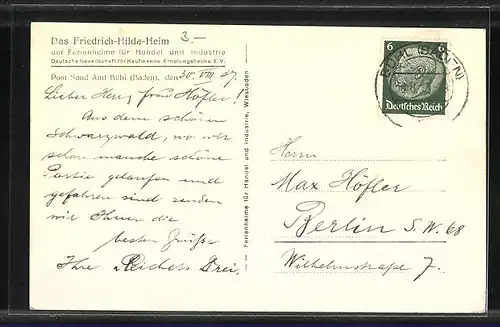 Das Friedrich-Hilda-Heim
der Ferienheime für Handel und Industrie
Deutsche Gesellschaft für Kaufmanns-Erholungsheime E.V.
3.-
Post Sand Amt Bühl (Baden), den 30. VIII 37.
Lieber Herr, Frau Höfler!
Aus dem schönen
Schwarzwald, wo wir
schon manche schöne
Partie gelaufen und
gefahren sind senden
wir Ihnen die
besten Grüße
Ihre Reichels Drei.
Ferienheime für Handel und Industrie, Wiesbaden
6 6
Deutsches Reich
BÜHL (BADEN)
Herrn
Max Höfler
Berlin S.W. 68
Wilhelmstraße 7.